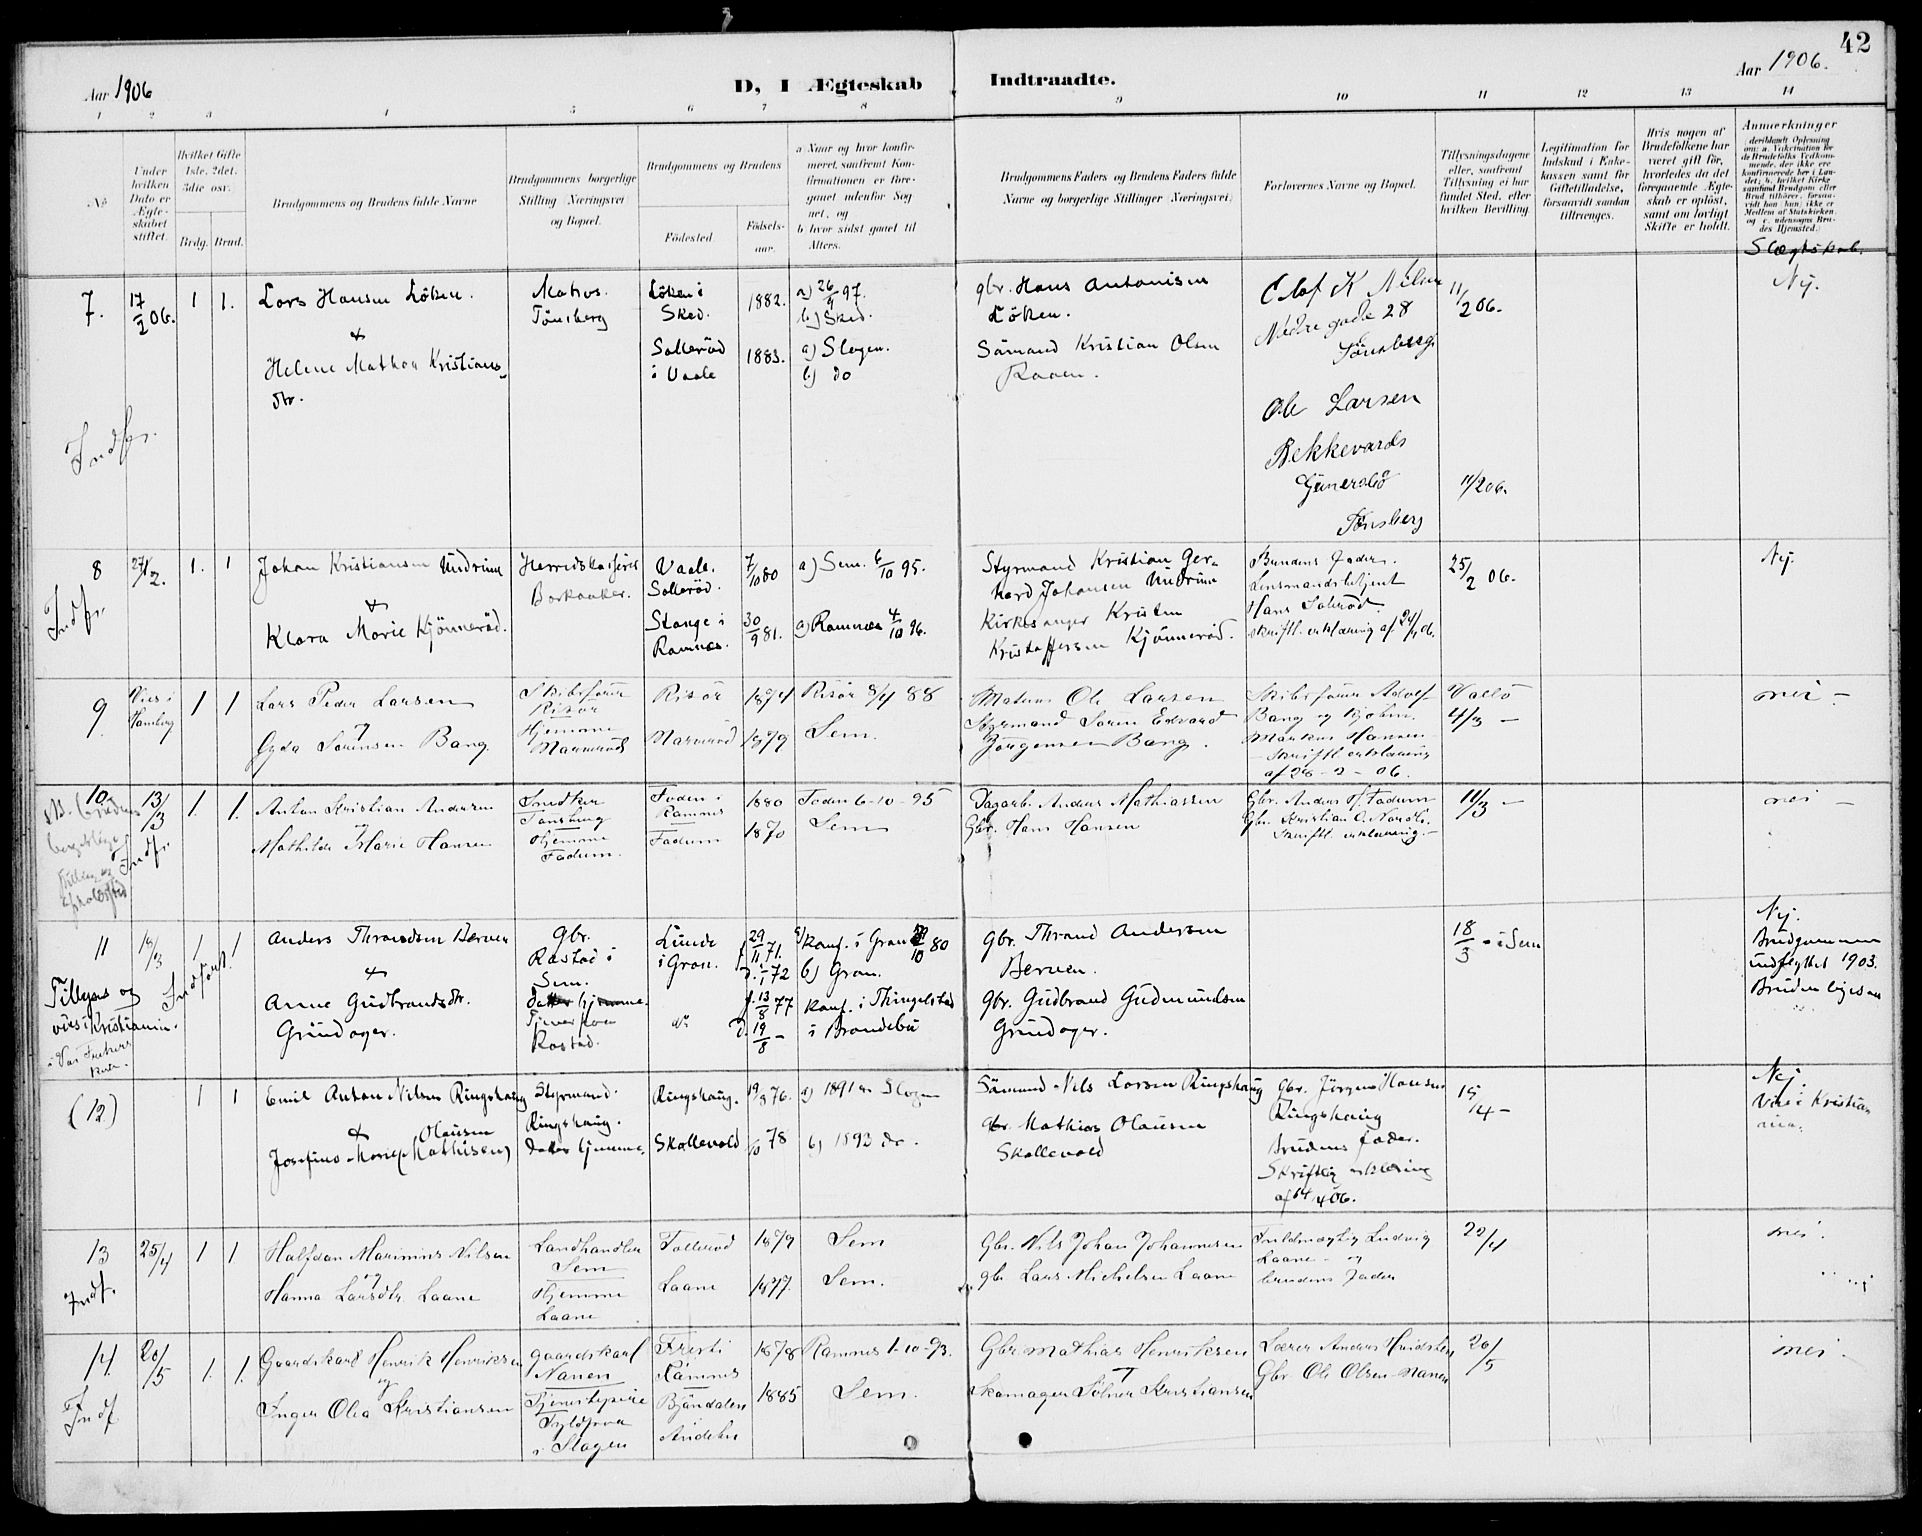 42
Aar 1906
D, I Ægteskab
Indtraadte.
Aar 1906.
1 2 3 4 5 6 7 8
9 10 11 12 13 14
No
Under hvilken Dato er Ægteskabet stiftet.
Hvilket Gifte 1ste, 2det, 3die osv.
Brdg. Brud.
Brudgommens og Brudens fulde Navne
Brudgommens borgerlige Stilling (Næringsvei) og Bopæl.
Brudgommens og Brudens
Födested.
Födselsaar.
a Naar og hvor konfirmeret, saafremt Konfirmationen er foregaaet udenfor Sognet, og
b hvor sidst gaaet til Alters.
Brudgommens Faders og Brudens Faders fulde Navne og borgerlige Stillinger (Næringsvei)
Forlovernes Navne og Bopæl.
Tillysningsdagene eller, saafremt Tillysning ei har fundet Sted, efter hvilken Bevilling
Legitimation for Indskud i Enkekassen samt for Giftetilladelse, forsaavidt saadan tiltrænges.
Hvis nogen af Brudefolkene har været gift för, hvorledes da det foregaaende Ægteskab er oplöst, samt om lovligt Skifte er holdt.
Anmærkninger
Slægtskab.
7.
17/2 06.
1 1.
Lars Hansen Löken.
&
Helene Mathea Kristians-
dtr.
Matros.
Tönsberg
Löken i
Sked.
1882.
a) 26/9 97.
b) Sked.
Solleröd
i Vaale
1883.
a) Slagen.
b) do
gbr. Hans Antonisen
Löken.
Sömand Kristian Olsen
Raaen.
Olaf K Nilsen
Nedre gade 28
Tönsberg
Ole Larsen
Bekkevards
Tönsberg
11/2 06.
11/2 06.
Nej.
Indfr.
8
27/2.
1. 1
Johan Kristiansen Undrum
&
Klara Marie Kjönneröd.
Herredskasserer
Barkaaker.
Vaale.
Solleröd.
7/10 80
a) Sem. 6/10 95.
Stange i
Ramnæs.
30/9 81.
a) Ramnæs 4/10 96.
Styrmand Kristian Ger-
hard Johansen Undrum
Kirkesanger Kristen
Kristoffersen Kjönneröd.
Brudens Fader.
Lensmandsbetjent
Hans Solleröd.
skriftl. erklæring af 24/2 06.
25/2 06.
Nej.
Indfr.
9
Vies i
Hamburg
1 1
Lars Peder Larsen
og
Gyda Sörensen Bang
Skibsförer
Risör
Hjemme
Narveröd
Risör
1874
Risör 8/4 88
Narveröd
1879
Sem.
Matros Ole Larsen
Styrmand Sören Edvard
Jörgensen Bang.
Skibsförer Adolf
Bang og Kjöbm.
Markus Hansen
Skriftl. erklæring
af 28-2-06.
Vallö
4/3 -
nei -
10
13/3
1. 1.
Anton Kristian Andersen
og
Mathilde Marie Hansen
Snedker
Tönsberg
Hjemme
Fadum.
Foden i
Ramnes
Fadum
1880
1870
Foden 6-10-95
Sem
Dagarb. Anders Mathiassen
Gbr. Hans Hansen
Gbr. Anders H. Fadum
Gbr. Kristian O. Nordbö.
Skriftl. erklæring.-
11/3 -
nei -
Indfr.
11
18/3
1 1
Indfört.
Tillyses og
vies i Kristiania.
i Vor Frelsers
Kirke.
Anders Throndsen Berven
&
Anne Gudbrandsdtr.
Grindager.
Gbr.
Rastad i
Sem.
Tjener hos
Rastad.
Lunde
i Gran.
do
f. 29/11 71.
d. 1/1 72
f. 13/8 77
d. 19/8 -
a) Konf. i Gran 10 80
b) Gran.
Konf. i Thingelstad
i Brandebu
gbr. Thrond Andersen
Berven.
gbr. Gudbrand Gudmundsen
Grindager.
18/3 - i Sem
Nej.
Brudgommen
indflyttet 1903.
Bruden ligesaa
(12)
1 1
Emil Anton Nilsen Ringshaug
&
Olausen
Josefine Marie (Mathisen)
Styrmand.
Ringshaug.
Datter hjemme.
Ringshaug.
19/8 76.
a) 1891 i Slagen
Skallevold
78
b) 1893 do.
Sömand Nils Larsen Ringshaug
gbr. Mathias Olausen
Skallevold
gbr. Jörgen Hansen
Ringshaug
Brudens fader.
Skriftlig erklæring
af 14/4 06.
15/4 -
Nej
Vies i Kristian
ia.
13
Indf.
25/4
1 1
Halfdan Marinius Nilsen
og
Hanna Larsdtr. Laane
Landhandler
Sem
Hjemme
Laane
Tolleröd
Laane
1879
1877.
Sem
Sem.
Gbr. Nils Johan Johannesen
gbr Lars Michelsen Laane
Fuldmægtig Ludvig
Laane og
brudens Fader
22/4
nei.
14.
Indf
20/5
1. 1.
Gaardskarl Henrik Henriksen
og
Inger Olea Kristiansen
gaardskarl
Nanen
Tjenestepige
i Slagen
Fresti
Ramnes
Bjöndalen
Andebu
1878
1885
Ramnes 1-10-93.
Sem.
Gbr Mathias Henriksen
Skomager Sölver Kristiansen
Lærer Anders Hvidsten
Gbr. Ole Olsen Nanen
20/5
nei.